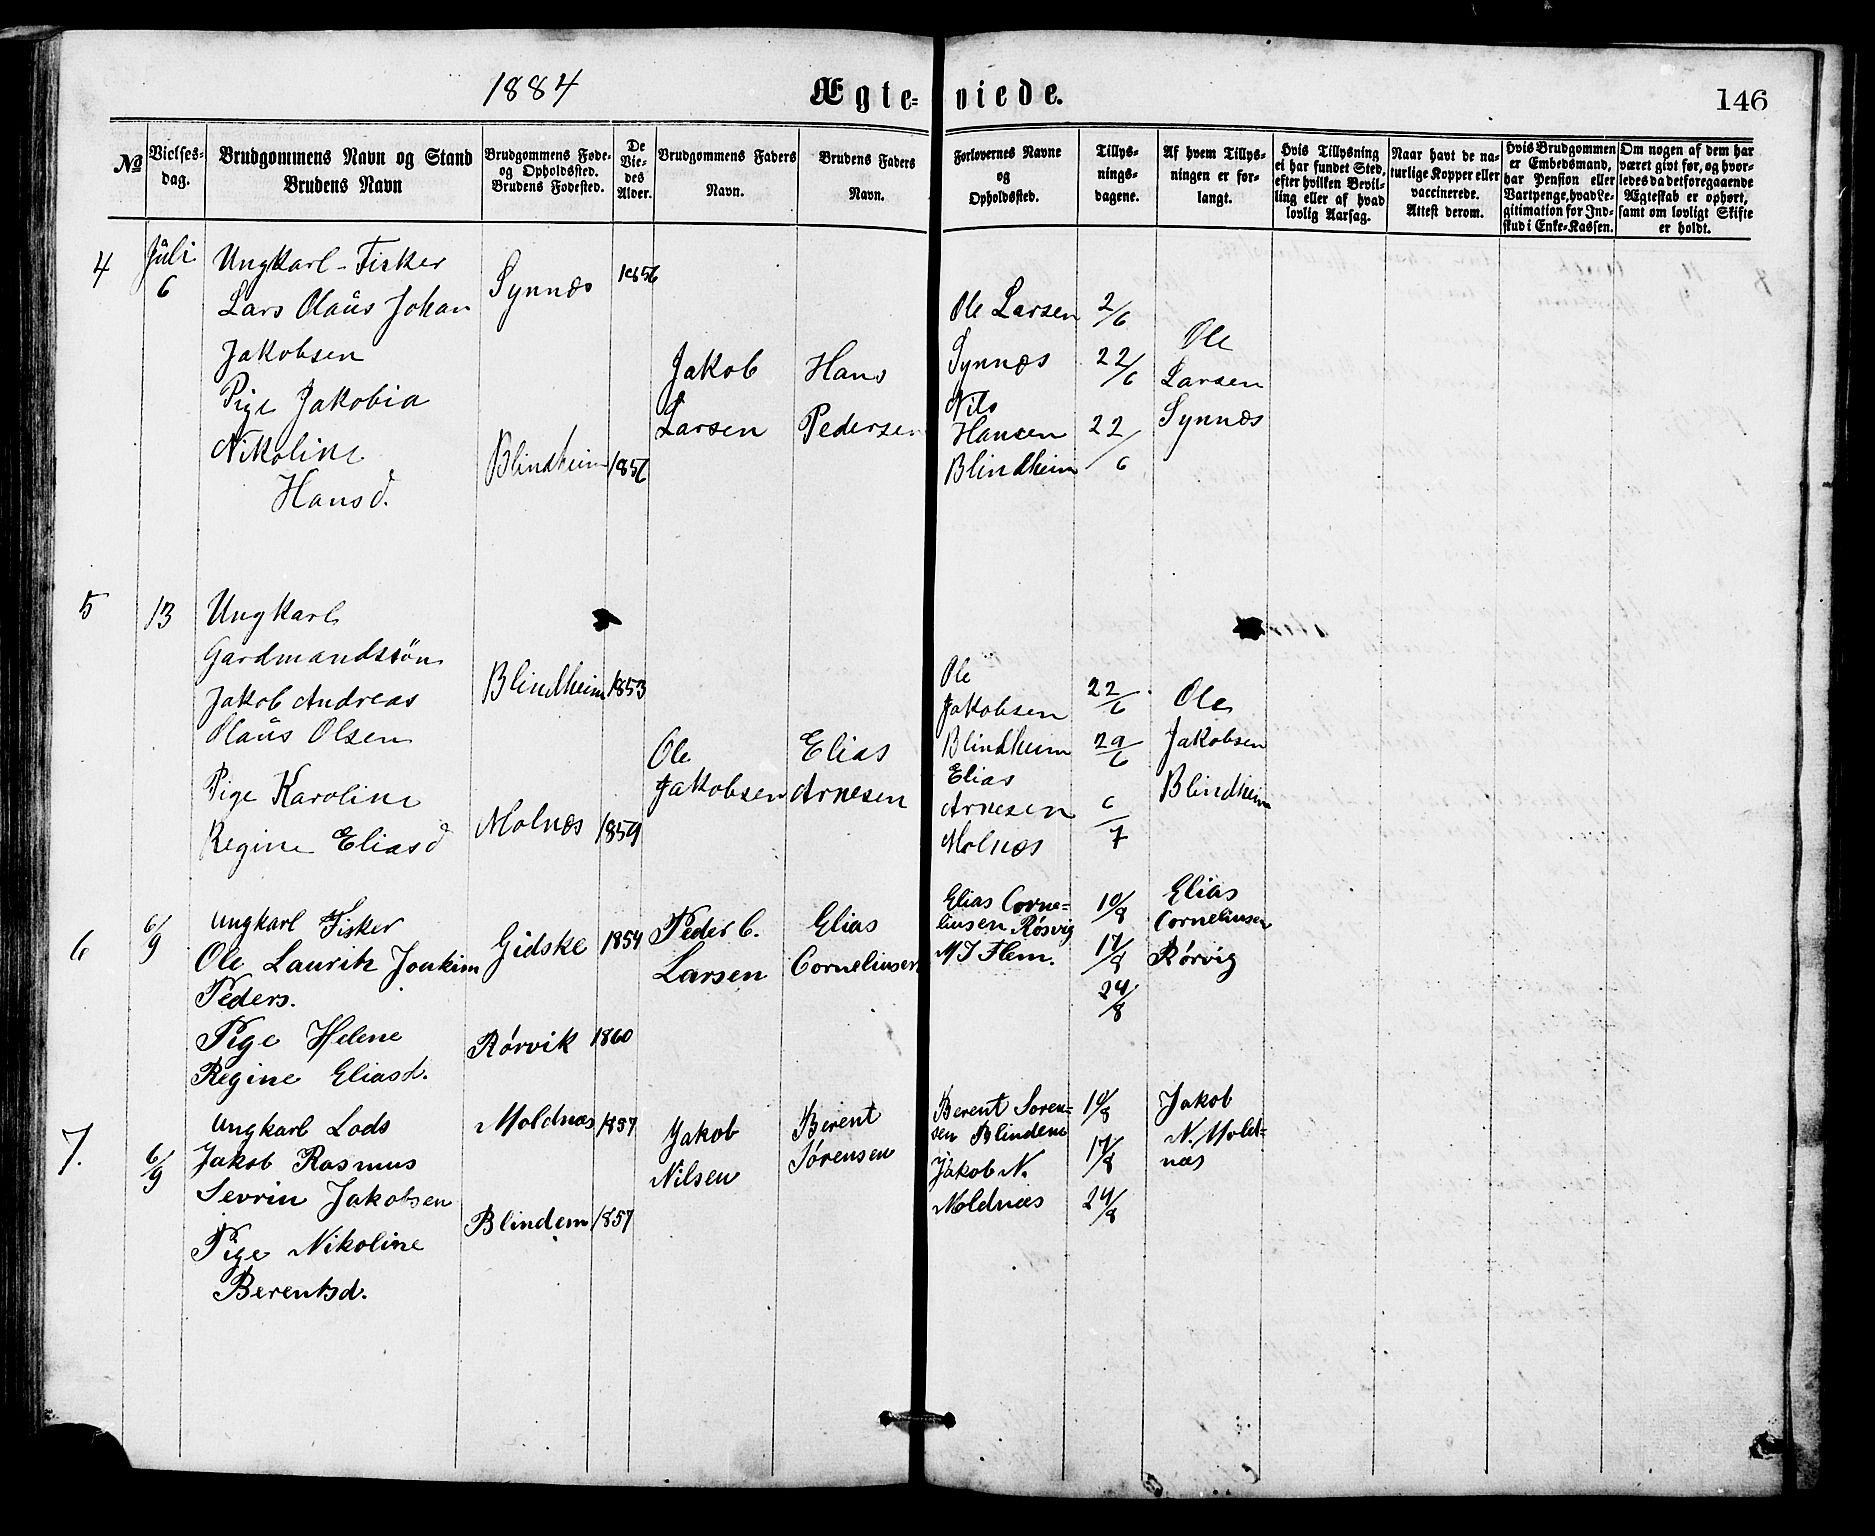 1884 Ægte-viede. 146
No
Vielses-dag.
Brudgommens Navn og Stand
Brudens Navn
Brudgommens Føde-
og Opholdssted.
Brudens Fødested.
De
Vie-
des
Alder.
Brudgommens Faders
Navn.
Brudens Faders
Navn.
Forlovernes Navne
og
Opholdssted.
Tillys-
nings-
dagene.
Af hvem Tillys-
ningen er for-
langt.
Hvis Tillysning
ei har fundet Sted,
efter hvilken Bevil-
ling eller af hvad
lovlig Aarsag.
Naar havt de na-
turlige Kopper eller
vaccinerede.
Attest derom.
Hvis Brudgommen
er Embedsmand,
har Pension eller
Vartpenge, hvad Le-
gitimation for Ind-
skud i Enke-Kassen.
Om nogen af dem har
været givt før, og hvor-
ledes da det foregaaende
Ægteskab er ophørt,
samt om lovligt Skifte
er holdt.
4
Juli
6
Ungkarl - Fisker
Lars Olaüs Johan
Jakobsen
Pige Jakobia
Nikoline
Hansd.
Synnæs
Blindheim
1856
1856
Jakob
Larsen
Hans
Pedersen
Ole Larsen
Synnæs
Nils
Hansen
Blindheim
2/6
22/6
22/6
Ole
Larsen
Synnæs
5
13
Ungkarl
Gardmandssön
Jakob Andreas
Olaüs Olsen
Pige Karoline
Regine Eliasd
Blindheim
Molnæs
1853
1859
Ole
Jakobsen
Elias
Arnesen
Ole
Jakobsen
Blindheim
Elias
Arnesen
Molnæs
22/6
29/6
6/7
Ole
Jakobsen
Blindheim
6
6/9
Ungkarl Fisker
Ole Lauritz Joakim
Peders.
Pige Helene
Regine Eliasd.
Gidske
Rørvik
1854
1860
Peder C.
Larsen
Elias
Corneliusen
Elias Corne-
liusen Røsvig
M J Flem.
10/8
17/8
24/8
Elias
Corneliusen
Rørvig
7.
6/9
Ungkarl Lods
Jakob Rasmus
Sevrin Jakobsen
Pige Nikoline
Berentsd.
Moldnæs
Blindem
1857
1857
Jakob
Nilsen
Berent
Sørensen
Berent Soren-
sen Blindem
Jakob N.
Moldnæs
10/8
17/8
24/8
Jakob
N. Mold-
næs